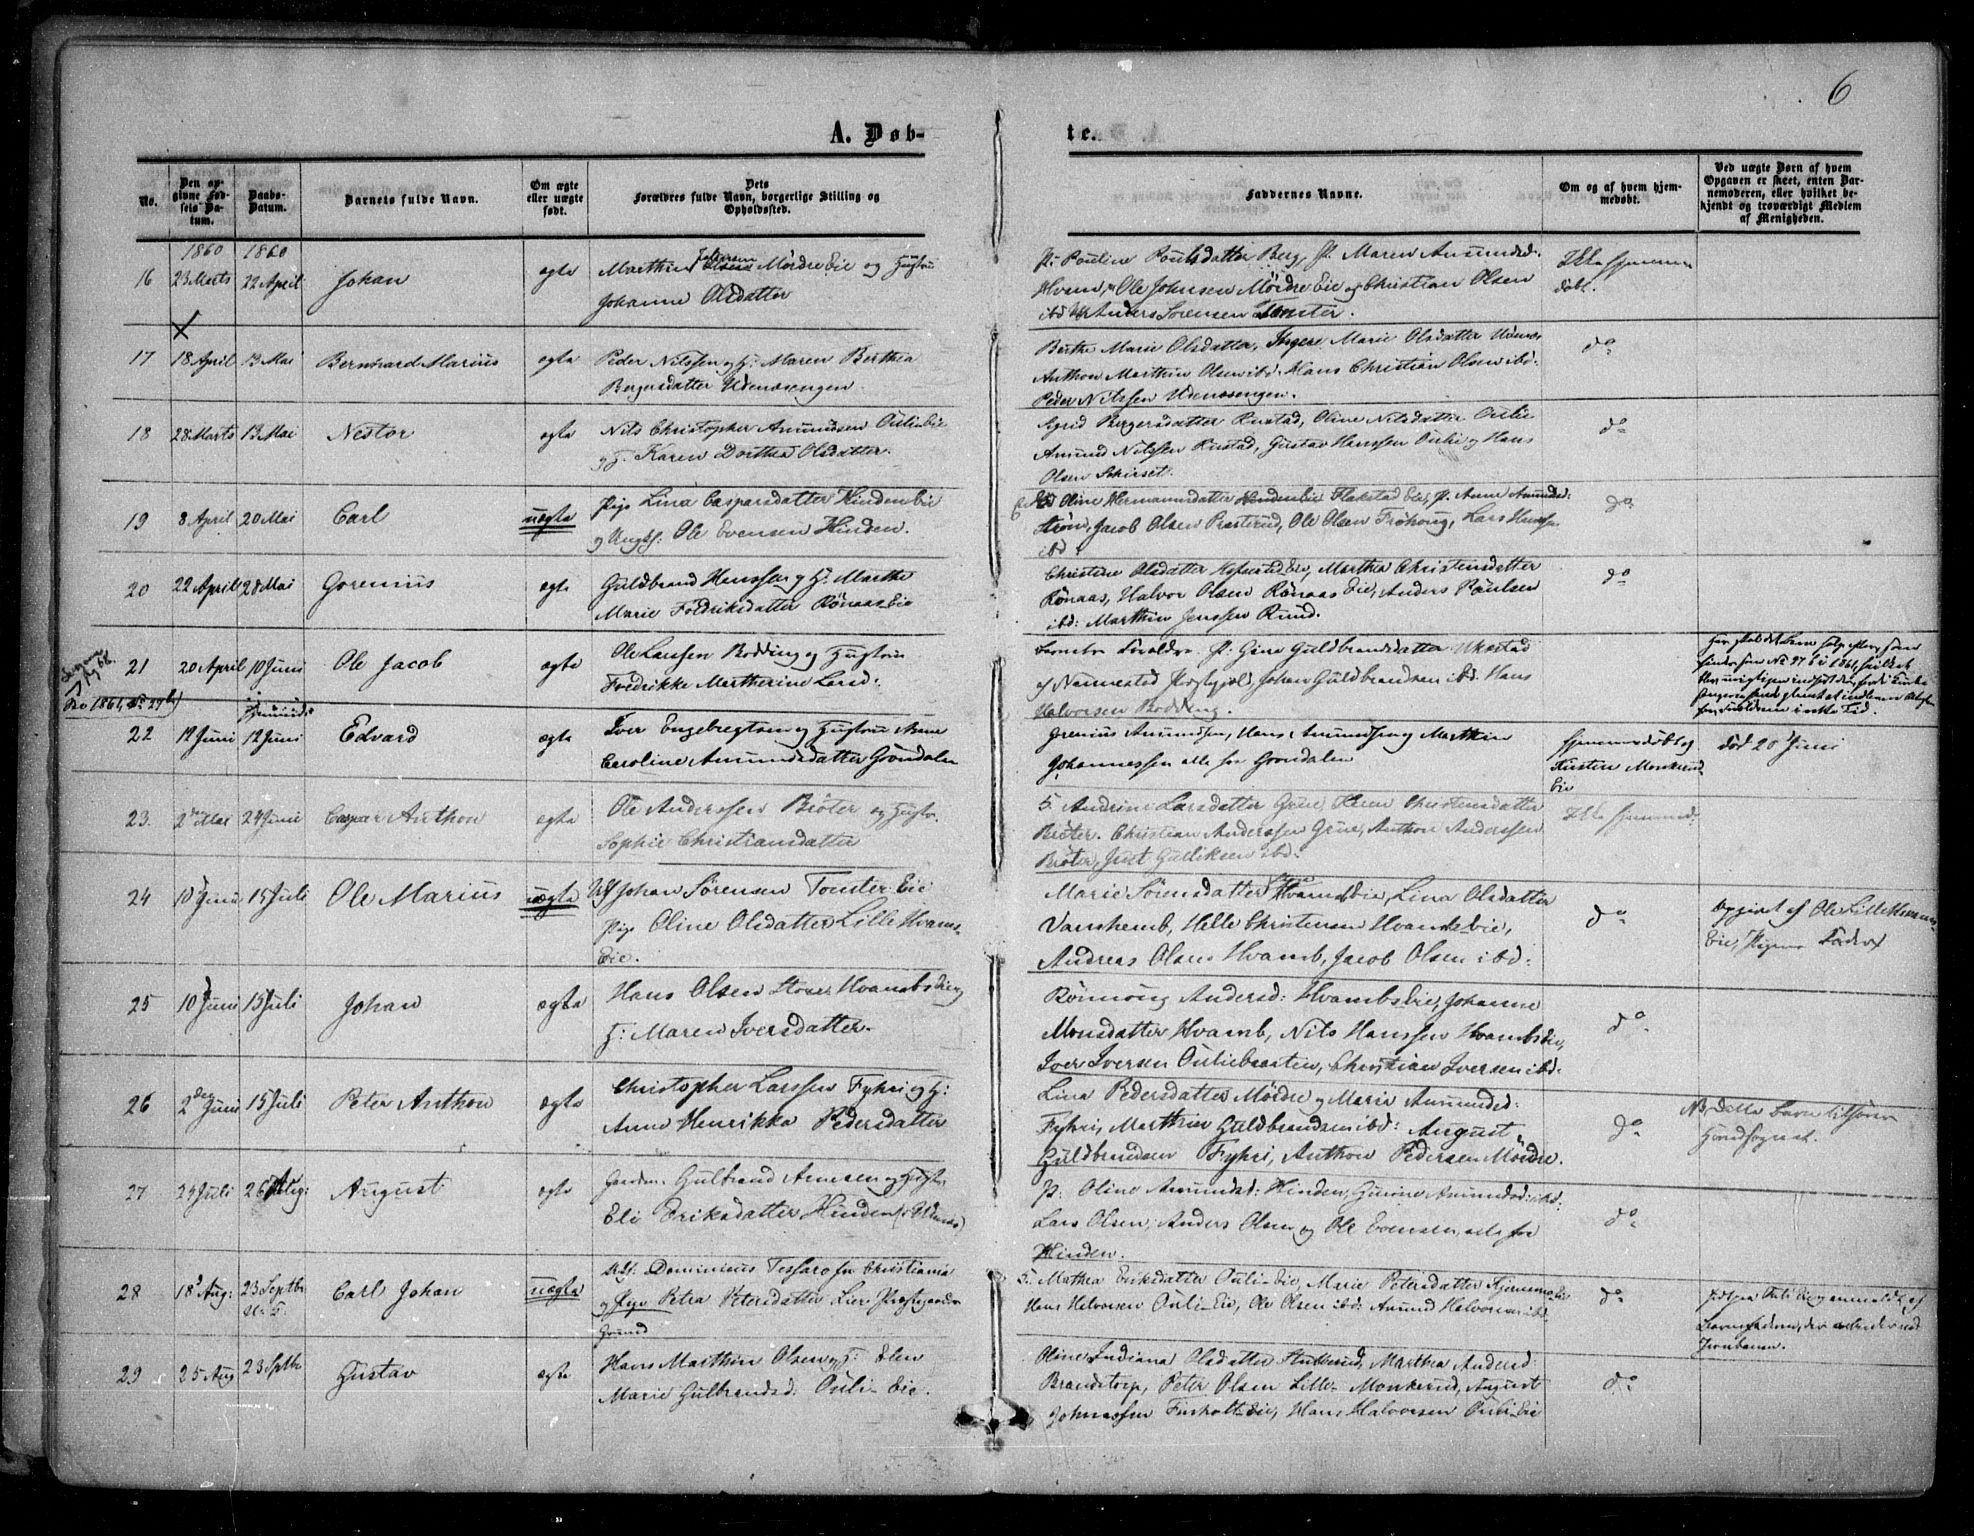 6
A. Døb-
te.
No.
Den op-
givne Fød-
sels Da-
tum.
Daabs-
Datum.
Barnets fulde Navn.
Om ægte
eller uægte
født.
Dets
Forældres fulde Navn, borgerlige Stilling og
Opholdssted.
Faddernes Navne.
Om og af hvem hjem-
medøbt.
Ved uægte Børn af hvem
Opgaven er skeet, enten Bar-
nemoderen, eller hvilket be-
kjendt og troværdigt Medlem
af Menigheden.
1860 1860
16 23 Marts 22 April Johan ægte
Marthin Olsen Mördre Eie og Hustru
Johanne Olsdatter
P. Pauline Poulsdatter Berg, P. Maren Amundsd:
Hvam, Ole Johnsen Mördre Eie og Christian Olsen
ibd Anders Sörensen Tomter.
Ikke hjemme
døbt.
17 18 April 13 Mai Bernhard Marius ægte
Peder Nilssen og H: Maren Berthea
Bergersdatter Udenæsengen.
Berthe Marie Olsdatter, Ingere Marie Olsdatter Udenæs
Anthon Marthin Olsen ibd. Hans Christian Olsen ibd.
Peder Nilssen Udenæsengen.
do
18 28 Marts 13 Mai Nestor ægte
Nils Christopher Amundsen Oulie Eie
og H. Karen Dorthea Olsdatter.
Sigrid Bergersdatter Rustad, Oline Nilsdatter Oulie
Amund Nilssen Rustad, Gustav Hanssen Oulie og Hans
Olsen Skirset.
do
19 8 April 20 Mai Carl uægte
Pige Lina Caspersdatter Hinden Eie
og Ungk: Ole Evensen Hinden.
Oline Hermansdatter Flakstad Eie, P. Anne Amundsd:
Ström, Jacob Olsen Præsterud, Ole Olsen Fröhoug, Lars Hansen
ibd.
do
20 22 April 28 Mai Gorenius ægte
Guldbrand Hanssen og H: Marthe
Marie Fredriksdatter Rönaas Eie
Christine Olsdatter Eie, Marthea Christensdatter
Rönaas, Halvor Olsen Rönaas Eie, Anders Poulsen
ibd: Marthin Jenssen Rund.
do
21 20 April 10 Juni Ole Jacob ægte
Ole Larssen Bodding og Hustru
Fredrikke Martherine Larsd:
Barnets Forældre. P. Gine Guldbrandsdatter Ukestad
af Nannestad Præstegjeld, Johan Guldbrandsen ibd. Hans
Halvorsen Bodding.
22 12 Juni 12 Juni Edvard ægte
Iver Engebregtsen og Hustru Anne
Caroline Amundsdatter Grøndalen
Grenius Amundsen, Hans Amundsen og Marthin
Johannessen alle fra Grøndalen
Hjemmedøbt af
Kirsten Monkerud
Eie
død 20 Juni
23. 2den Mai 24 Juni Casper Anthon ægte
Ole Anderssen Bröter og Hustr.
Sophie Christiansdatter
Andrine Larsdatter Grue, Karen Christensdatter
Bröter. Christian Anderssen Grue, Anthon Anderssen
Bröter, Just Gulliksen ibd.
Ikke hjemmed:
24 10 Juni 15 Juli Ole Marius uægte
Uk Johan Sörensen Tomter Eie
Pige Oline Olsdatter Lille Hvams
Eie.
Marie Sörensdatter Hvams Eie, Lina Olsdatter
Vanshemb, Helle Christensen Hvamds Eie,
Andreas Olsen Hvamb, Jacob Olsen ibd:
do
Opgivet af Ole Lille Hvams
Eie, Pigens Fader
25 10 Juni 15 Juli Johan ægte
Hans Olsen Store Hvambs Eie og
H: Maren Iversdatter.
Rönnoug Andersd: Hvambs Eie, Johanne
Monsdatter Hvamb, Nils Hanssen Hvambs Eie,
Iver Iversen Ouliebraaten, Christian Iversen ibd:
do
26 2den Juni 15 Juli Peter Anthon ægte
Christopher Larssen Fyhri og H:
Anne Henrikka Pedersdatter
Lina Pedersdatter Mördre og Marie Amundsd:
Fyhri, Marthin Guldbrandsen ibd: August
Guldbrandsen Fyhri, Anthon Pedersen Mördre.
do
NB, dette Barn tilhörer
27 24 Juli 26 Aug: August ægte
Gulbrand Arnesen og Hustr.
Eli Eriksdatter Hinden (Udenæs)
P: Oline Amundsd: Hinden, Gurine Amundsd: ibd:
Lars Olsen, Anders Olsen og Ole Evensen, alle fra
Hinden.
do
28 18 Aug: 23 Septbr Carl Johan uægte
Dominicus Tessaro fra Christiania
og Pige Petra Petersdatter Lier Præstegaard
Grund
Mathea Eriksdatter Ouli-Eie, Marie Petersdatter
Hans Halvorsen Ouli-Eie, Ole Olsen ibd: Amund Halvorsen ibd.
do
29 25 Aug 23 Septbr Gustav ægte
Hans Marthin Olsen og H: Elen
Marie Gulbrandsd: Ouli-Eie.
Oline Indiana Olsdatter Stukkerud, Marthea Andersd:
Brandstorp, Peter Olsen Lille-Monkerud, August
Johnsen Finholt-Eie, Hans Halvorsen Ouli-Eie
do